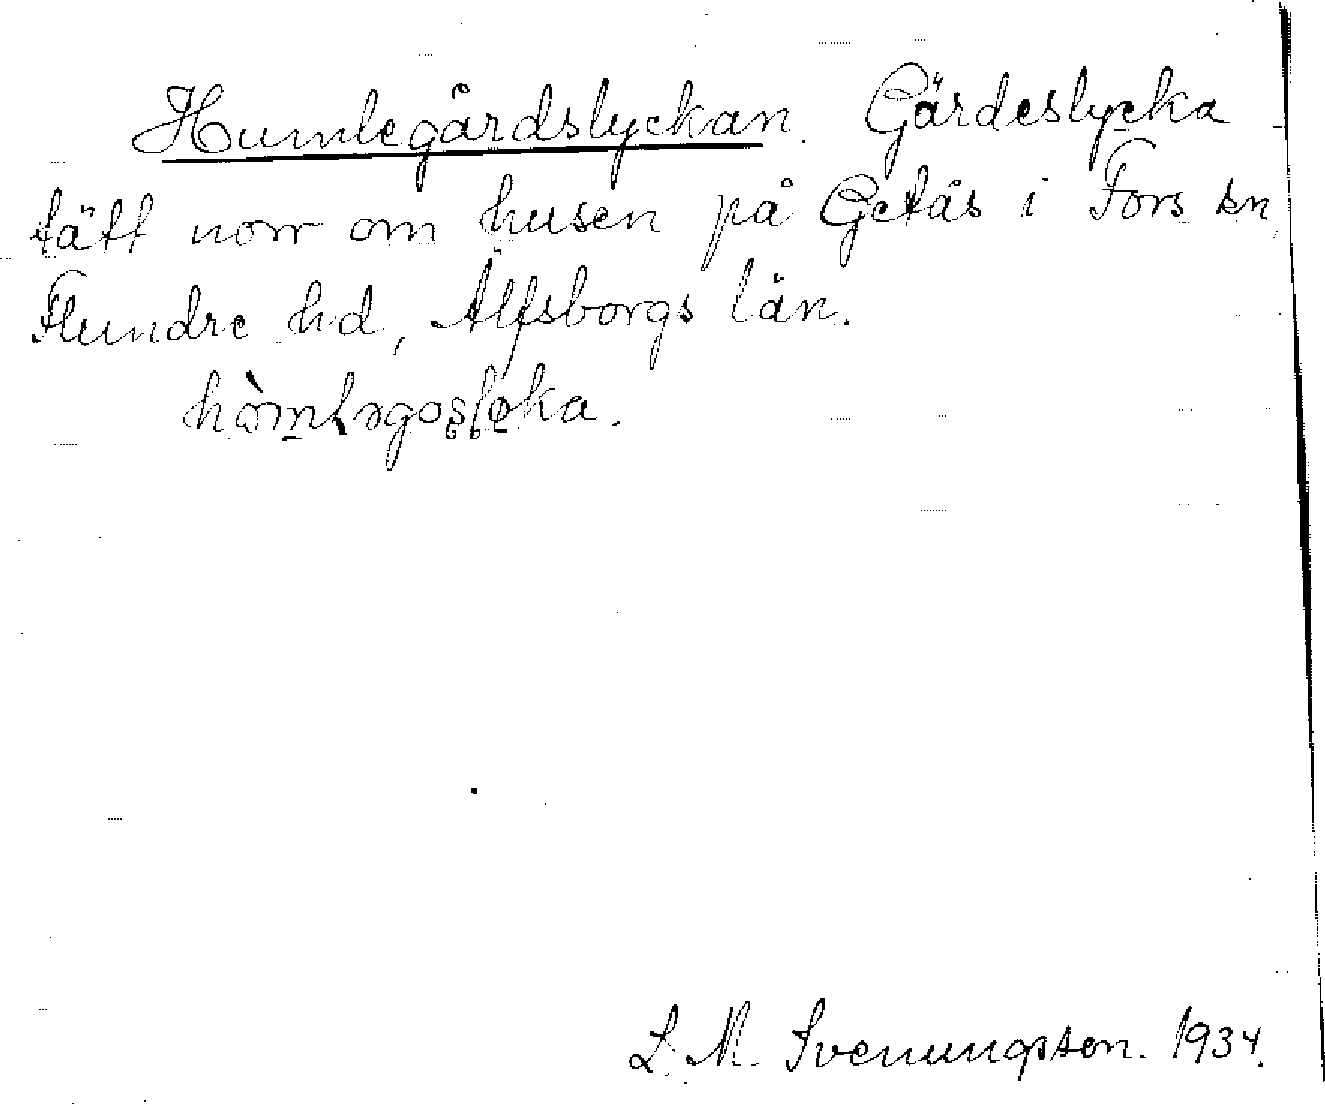 Humlegårdslyckan. Gärdeslycka
tätt norr om husen på Getås i Fors sn,
Flundre hd, Älfsborgs län.
L. M. Svenungsson. 1934.